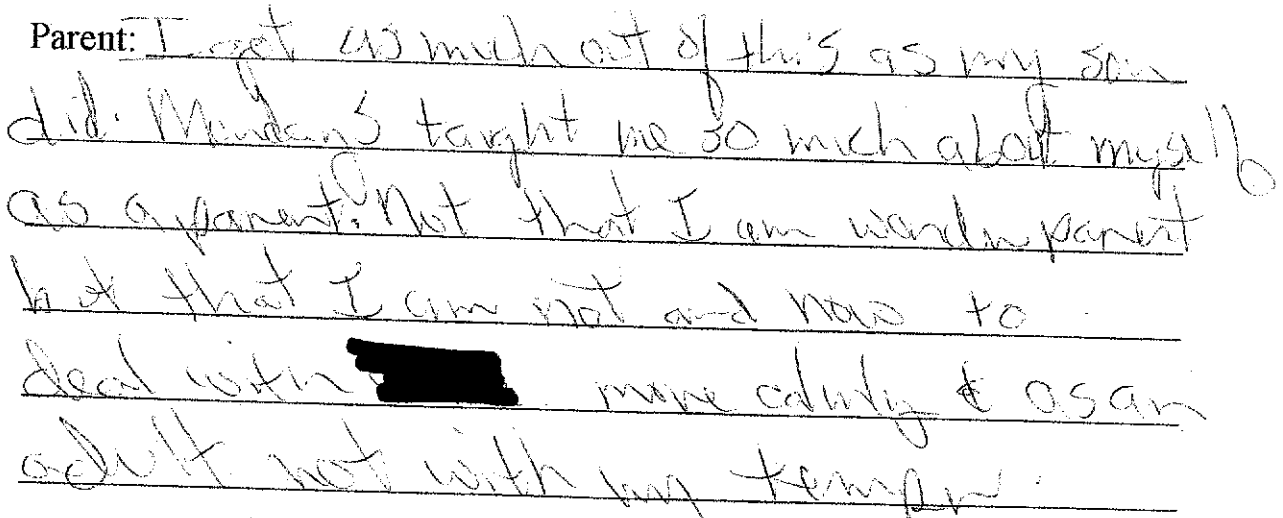 Parent: I get as much out of this as my son
did. taught me so much about myself
as a parent. Not that I am parent
but that I am not and how to
deal with more calmly & as an
adult not with my temper.